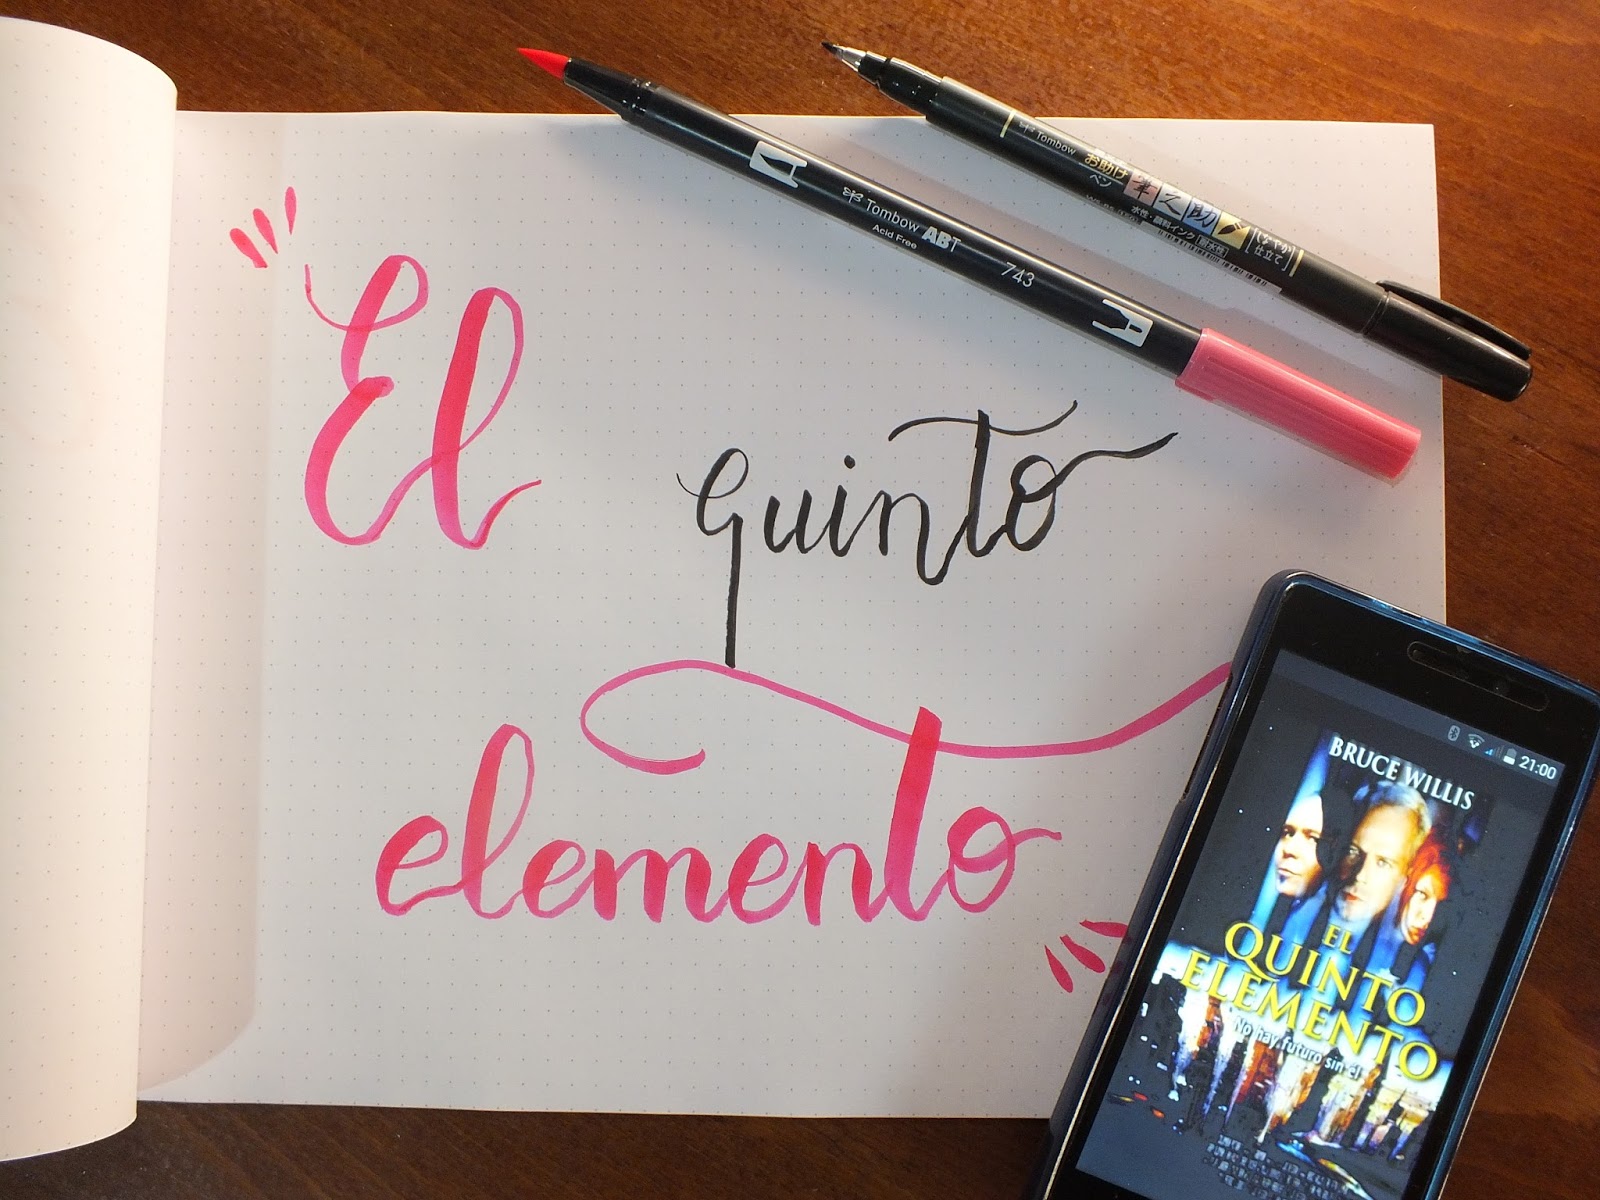 El
quinto
elemento
Tombow ABT
Acid Free
743
Tombow
お助け
ペン
筆之助
水性・顔料インク
しなやか
仕立て
21:00
BRUCE WILLIS
EL
QUINTO
ELEMENTO
No hay futuro sin él